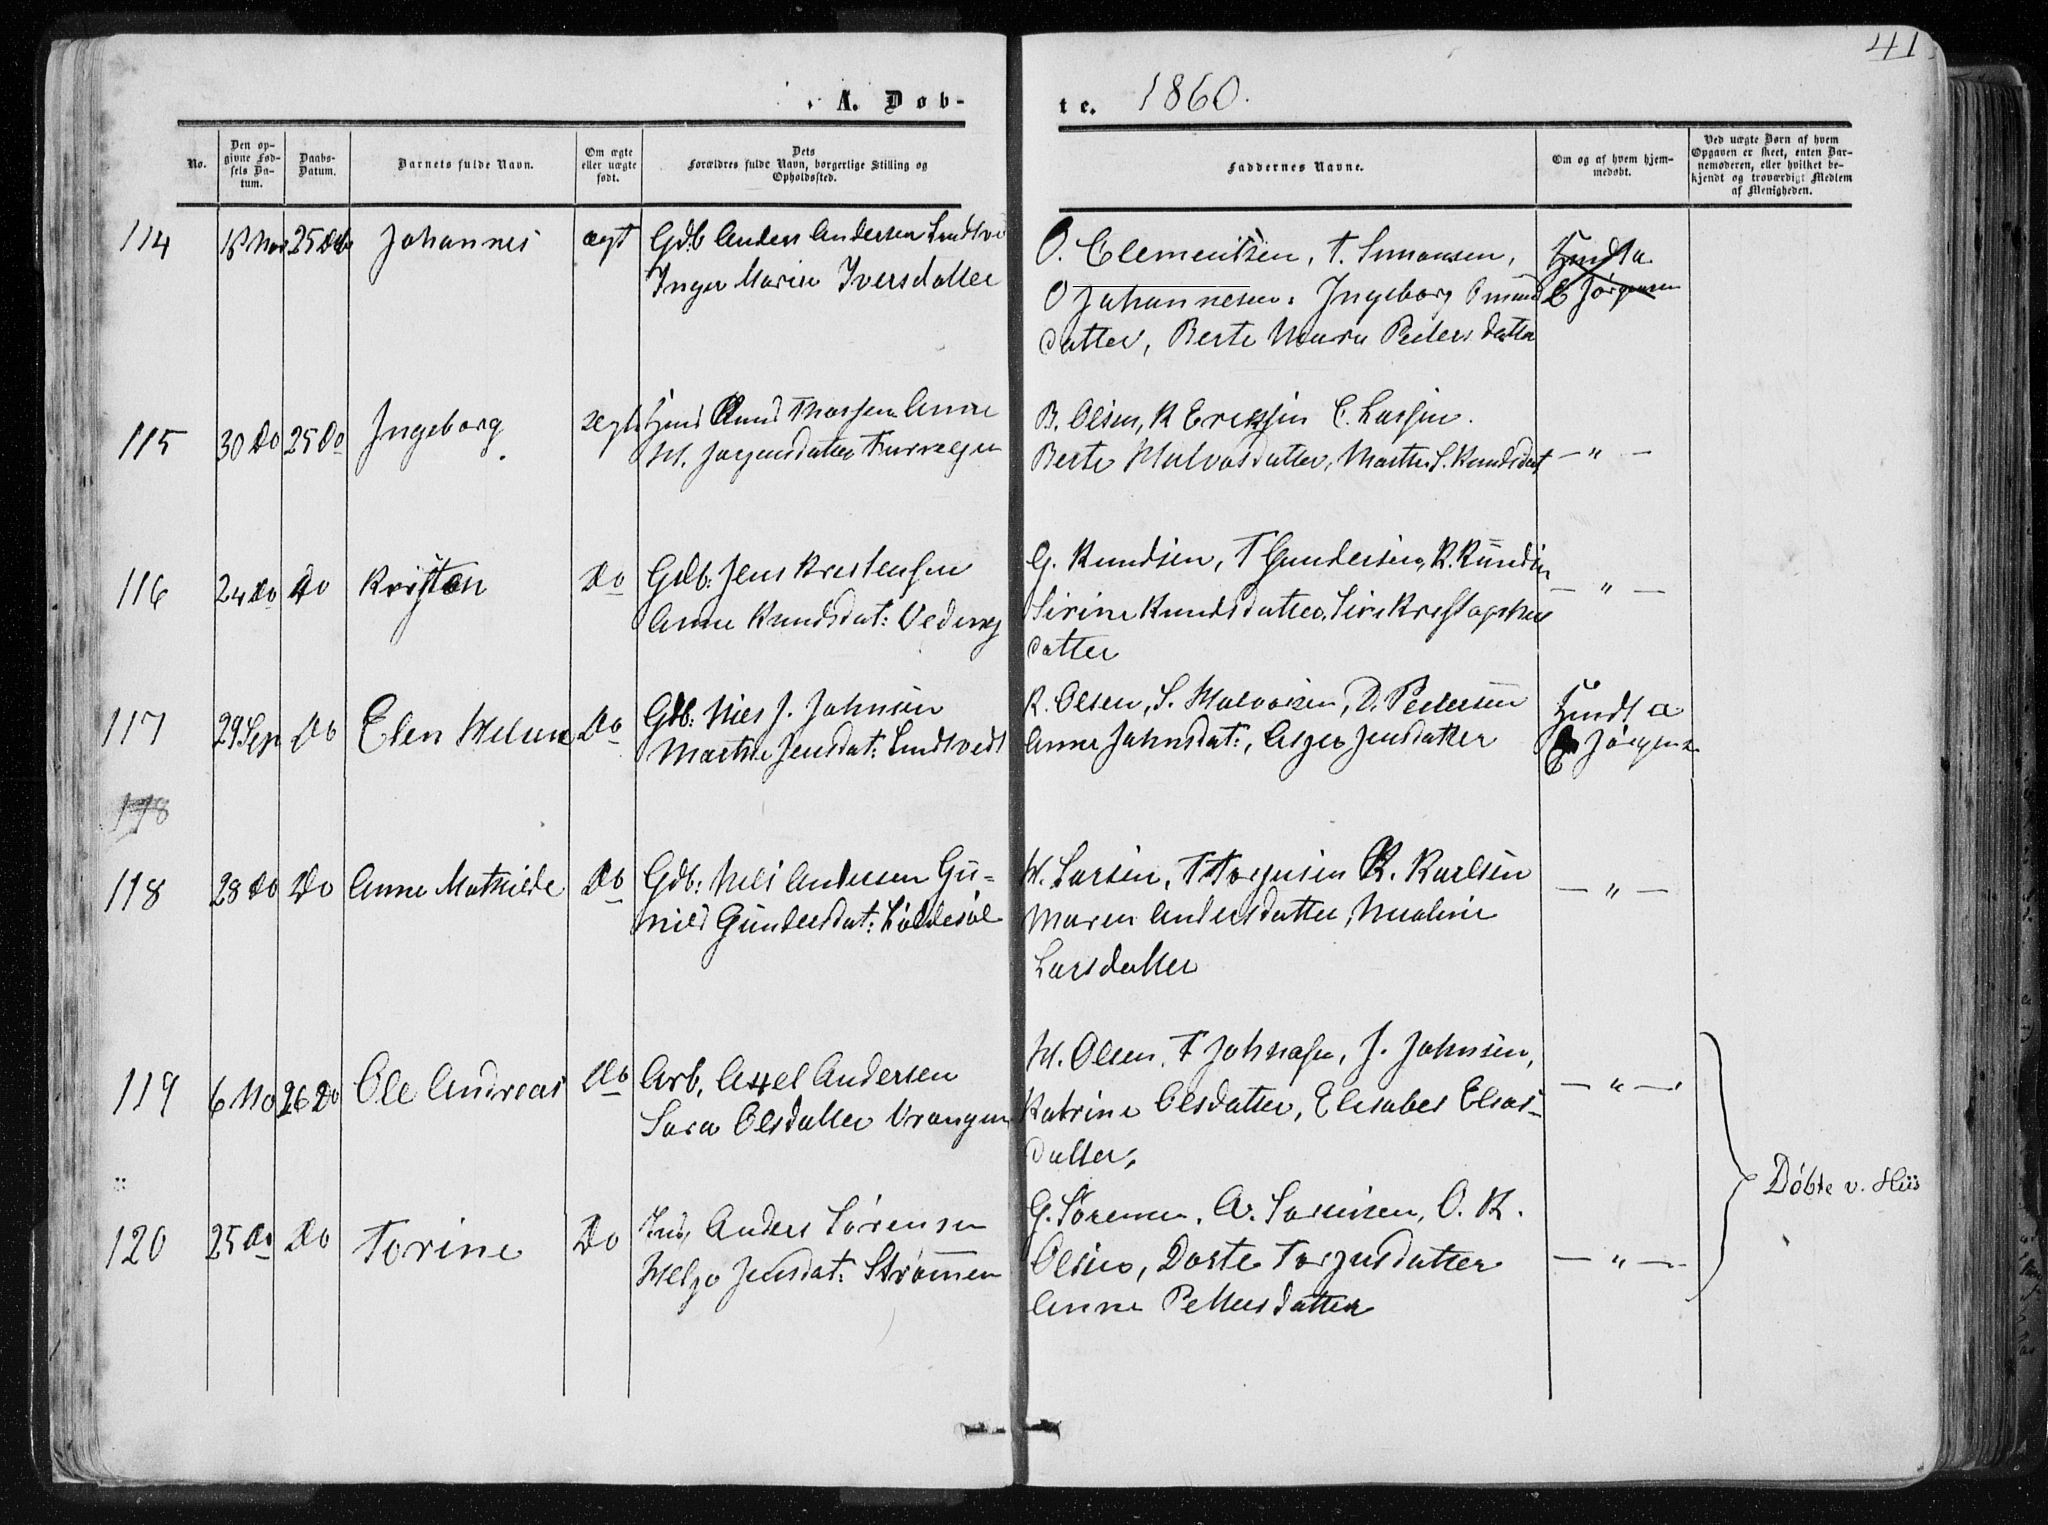 41
A. Døb-
te. 1860.
No.
Den op-
givne Fød-
sels Da-
tum.
Daabs-
Datum.
Barnets fulde Navn.
Om ægte
eller uægte
født.
Dets
Forældres fulde Navn, borgerlige Stilling og
Opholdssted.
Faddernes Navne.
Om og af hvem hjem-
medøbt.
Ved uægte Børn af hvem
Opgaven er skeet, enten Bar-
nemoderen, eller hvilket be-
kjendt og troværdigt Medlem
af Menigheden.
114 18 Nov 25 Johannes ægt Gdb Anders Andersen
Inger Marie Iversdatter
O. Clementsen, T. Simonsen,
O Johannesen, Ingeborg Omund
datter, Berte Maria Peders datter
115 30 Do 25 Do Ingeborg Knud Anne
B. Olsen, K Erikssen C. Lassen.
Berte Halvosdatter, Marthe S. Knudsdat — " —
116 24 Do Do Kristen Do Gdb: Jens Krestensen
Anne Knudsdat:
G. Knudsen, T Gundersen, K. Knudsen
Sirine Knudsdatter, — " —
datter
117 29 Sep Do Elen Do Gdb: Niels J. Johnsen
Marthe Jensdat: Lindtvedt
K. Olsen, S. Halvorsen, D. Pedersen
Anne Johnsdat:, Jensdatter
Jørgens
118
118 28 Do Do Anne Mathilde Do Gdb: Nels Andersen Gu-
nild Gundersdat:
H. Larsen, T Torjusen K. Karlsen
Maren Andersdatter,
Larsdatter
— " —
119 6 No 26 Do Ole Andreas Do Arb. Axel Andersen
Sara Olsdatter Vrangen
H. Olsen, T Johnsen, J. Johnsen,
Katrine Olsdatter, Elisabet Elias-
datter,
— " —
120 25 Do Do Torine Do Anders Sørensen
Helge Jensdat: Strømmen
G. Sørensen, A. Sørensen, O. K.
Olsen, Dorte Torjusdatter
Anne Pettersdatter
— " —
Døbte v. Hiis